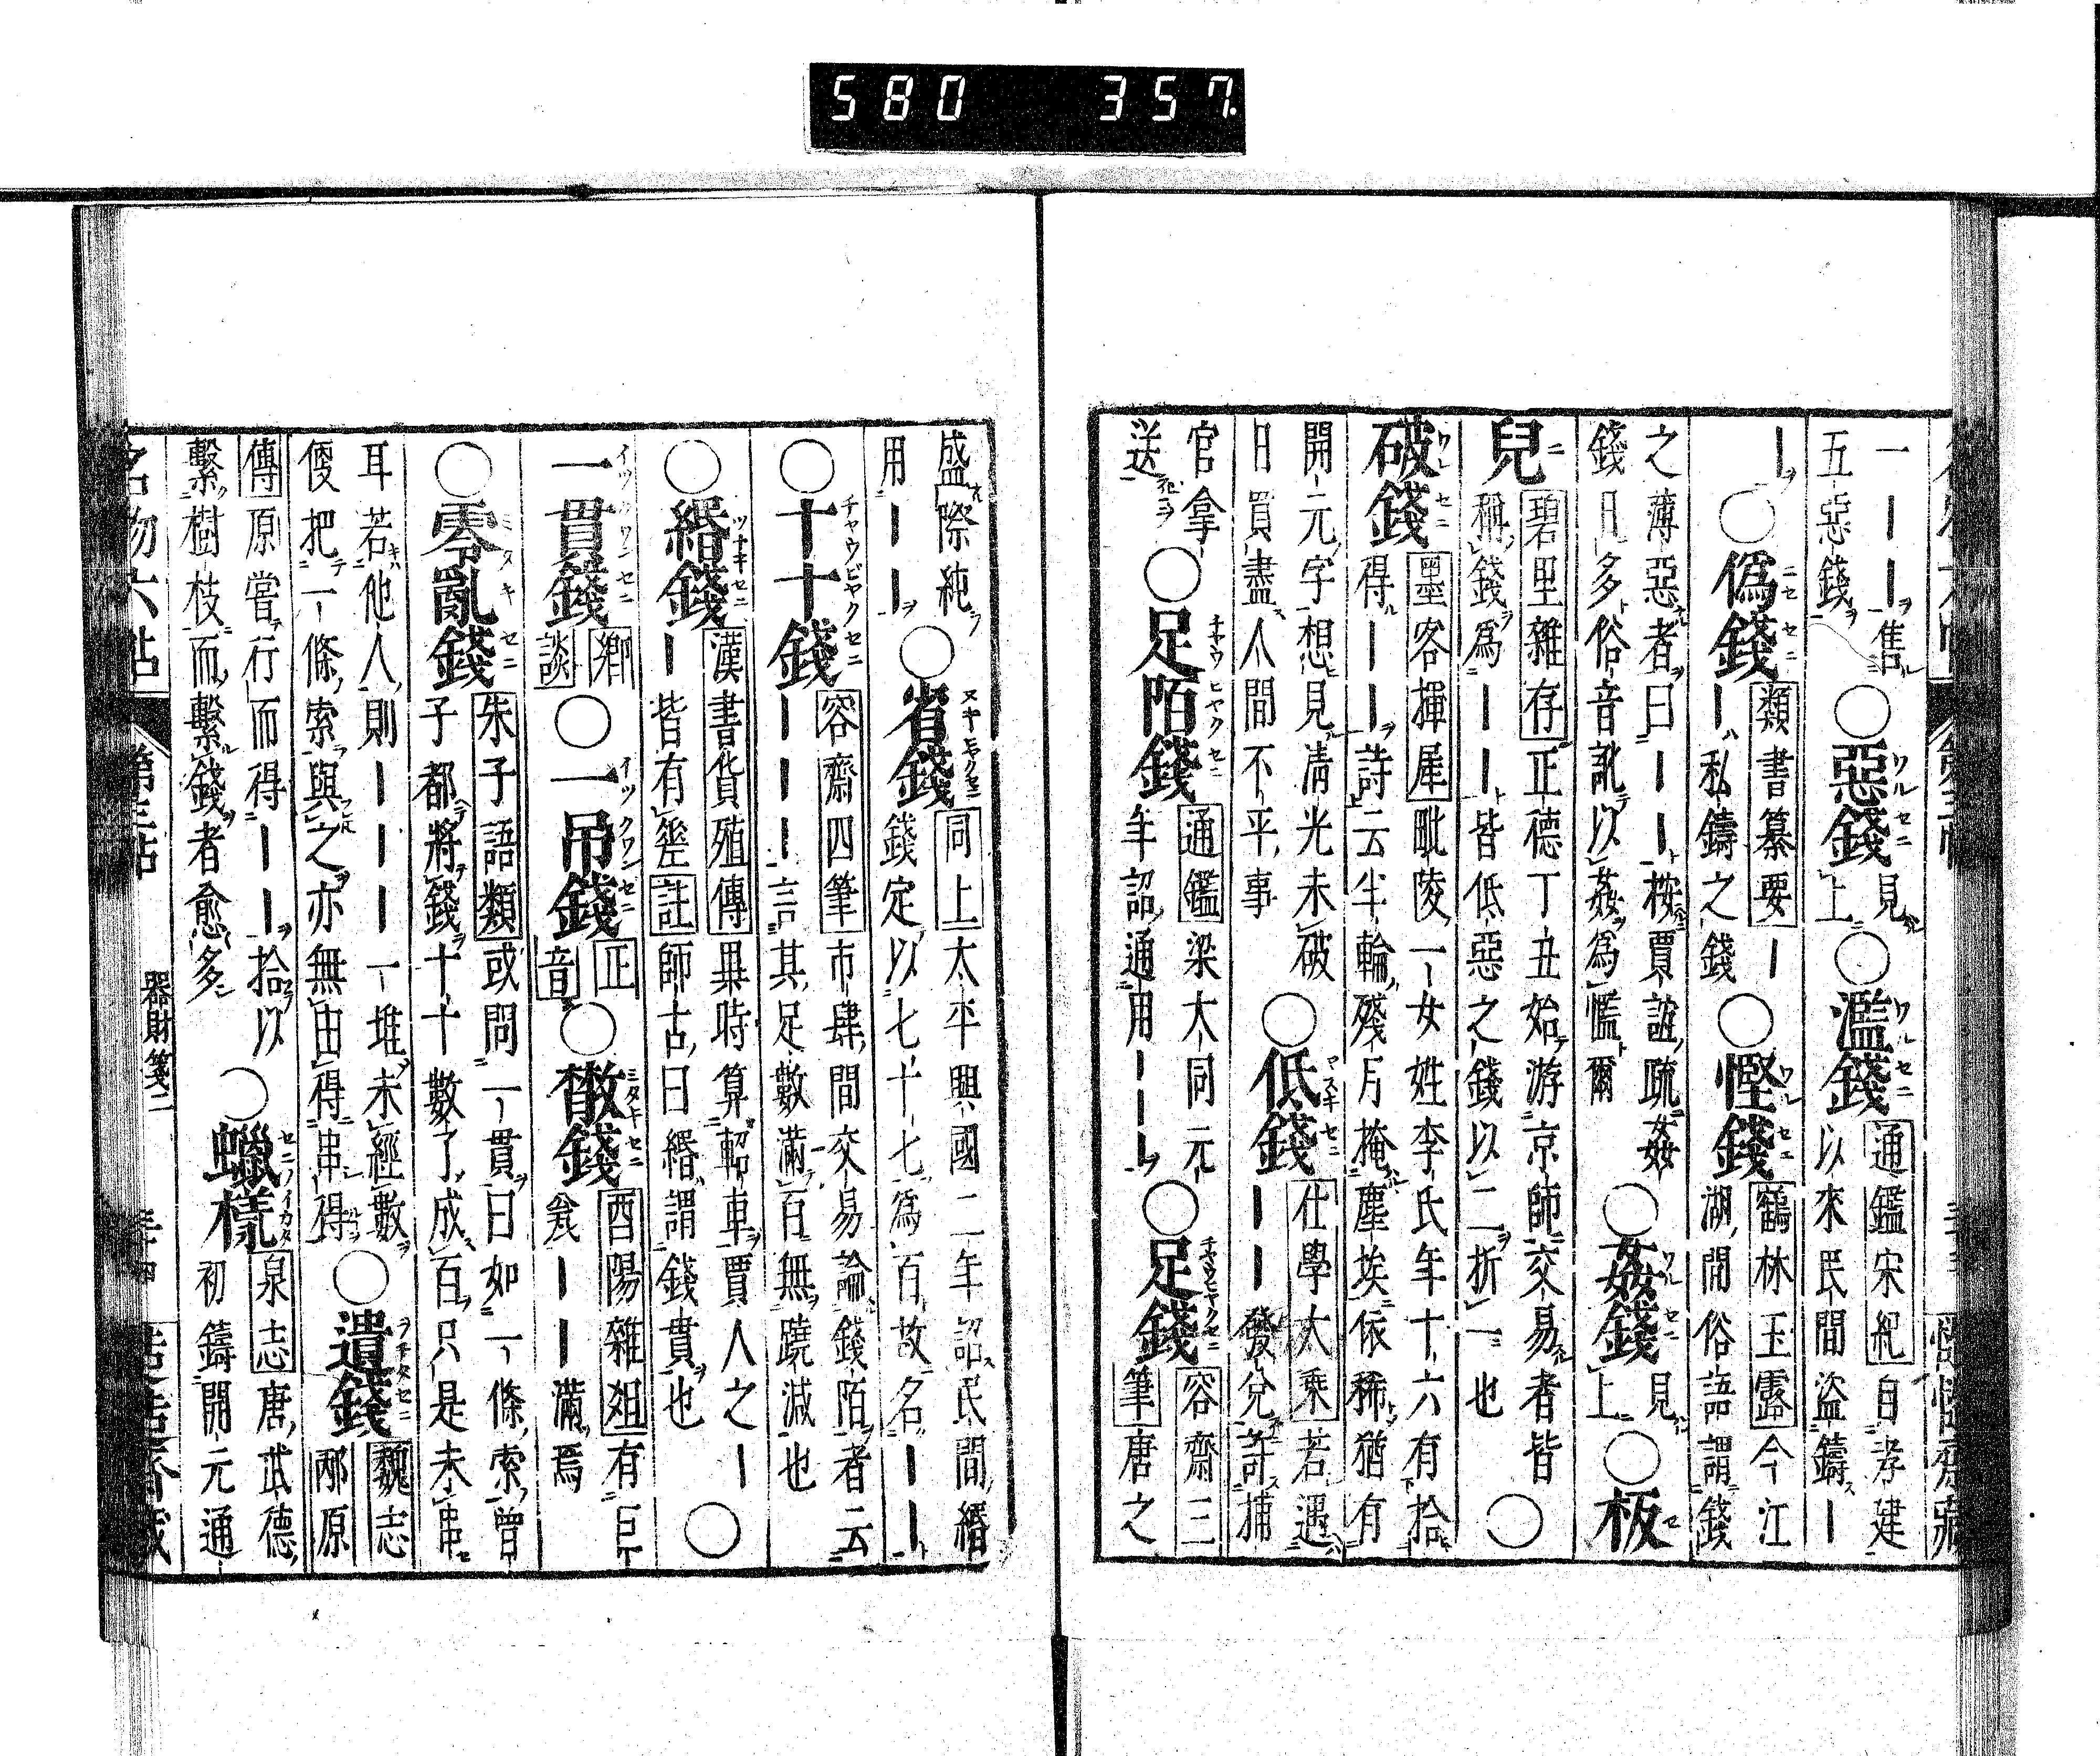 580 357.
一｜｜售
五惡錢
○惡錢 見上
○濫錢 通鑑宋紀自孝建
以來民間盜鑄｜
｜○僞錢 類書纂要｜
｜私鑄之錢
○慳錢 鶴林玉露今江
湖間俗語謂錢
之薄惡者曰｜｜桉賈誼疏姦
錢日多俗音訛以姦爲慳爾
○姦錢 見上
○板
兒 碧里雜存正德丁丑始游京師交易者皆
稱錢爲｜｜皆低惡之錢以二折一也
○
破錢 墨客揮犀毗陵一女姓李氏年十六有拾
得｜｜詩云半輪殘月掩塵埃依稀猶有
開元字想見清光未破
日買盡人間不平事
○低錢 仕學大乘若遇
｜｜發兌許捕
官拿
送
○足陌錢 通鑑梁大同元
年詔通用｜｜｜
○足錢 容齋三
筆唐之
盛際純
用｜｜
○省錢 同上太平興國二年詔民間緡
錢定以七十七爲百故名｜｜
○十十錢 容齋四筆市肆間交易論錢陌者云
｜｜｜言其足數滿百無蹺減也
○緡錢 漢書貨殖傳異時算軺車賈人之｜
｜皆有䇲註師古曰緡謂錢貫也
○
一貫錢 鄉
談
○一吊錢 正
音
○散錢 酉陽雜俎有巨
瓮｜｜滿焉
○零亂錢 朱子語類或問一貫曰如一條索曾
子都將錢十十數了成百只是未串
耳若他人則｜｜｜一堆未經數
便把一條索與之亦無由得串得
○遺錢 魏志
邴原
傳原嘗行而得｜｜拾以
繫樹枝而繫錢者愈多
○蠟樣 泉志唐武德
初鑄開元通
器財箋二